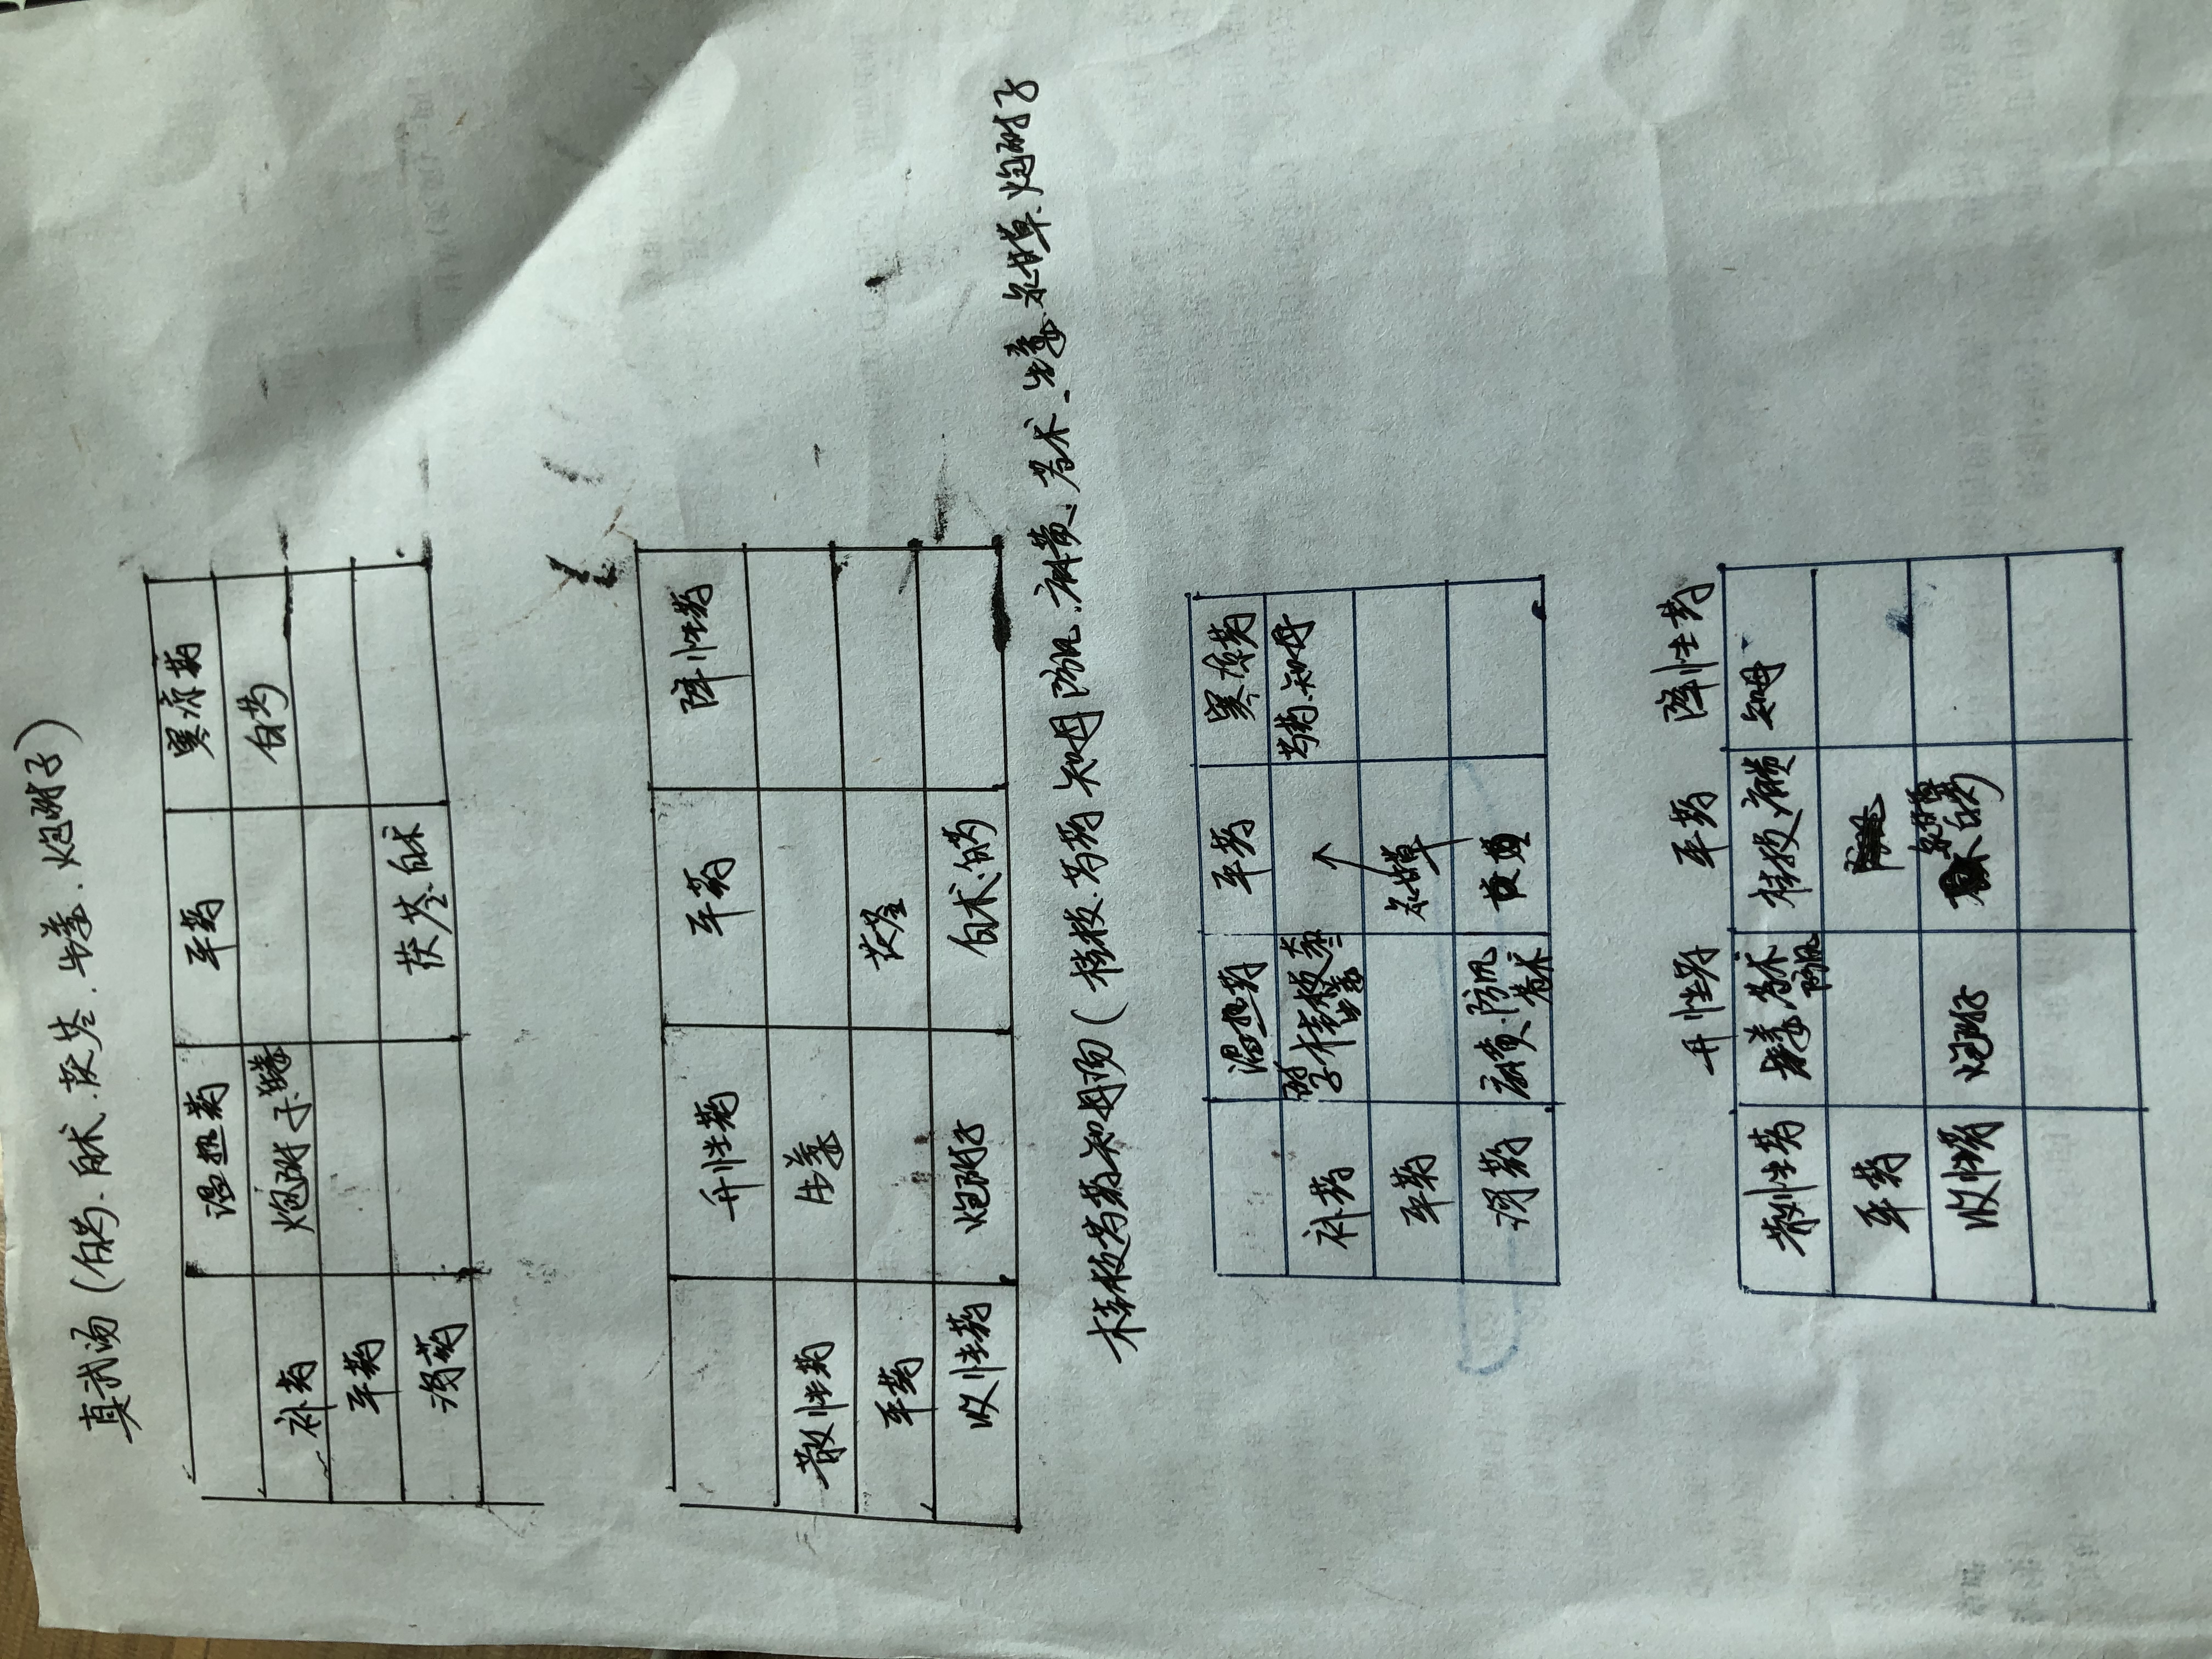 真武汤(白芍.白术.茯苓.生姜.炮附子)
温热药 平药 寒凉药
补药 炮附子.生姜 白芍
平药
泻药 茯苓.白术
升性药 平药 降性药
散性药 生姜
平药 茯苓
收性药 炮附子 白术.白芍
桂枝芍药知母汤(桂枝.芍药.知母.防风.麻黄.苍术.生姜.炙甘草.炮附子
温热药 平药 寒凉药
补药 附子 桂枝 生姜 芍药.知母
平药 炙甘草
泻药 麻黄.防风 苍术
升性药 平药 降性药
散性药 生姜 苍术 防风 桂枝 麻黄 知母
平药
收性药 炮附子 炙甘草 白芍